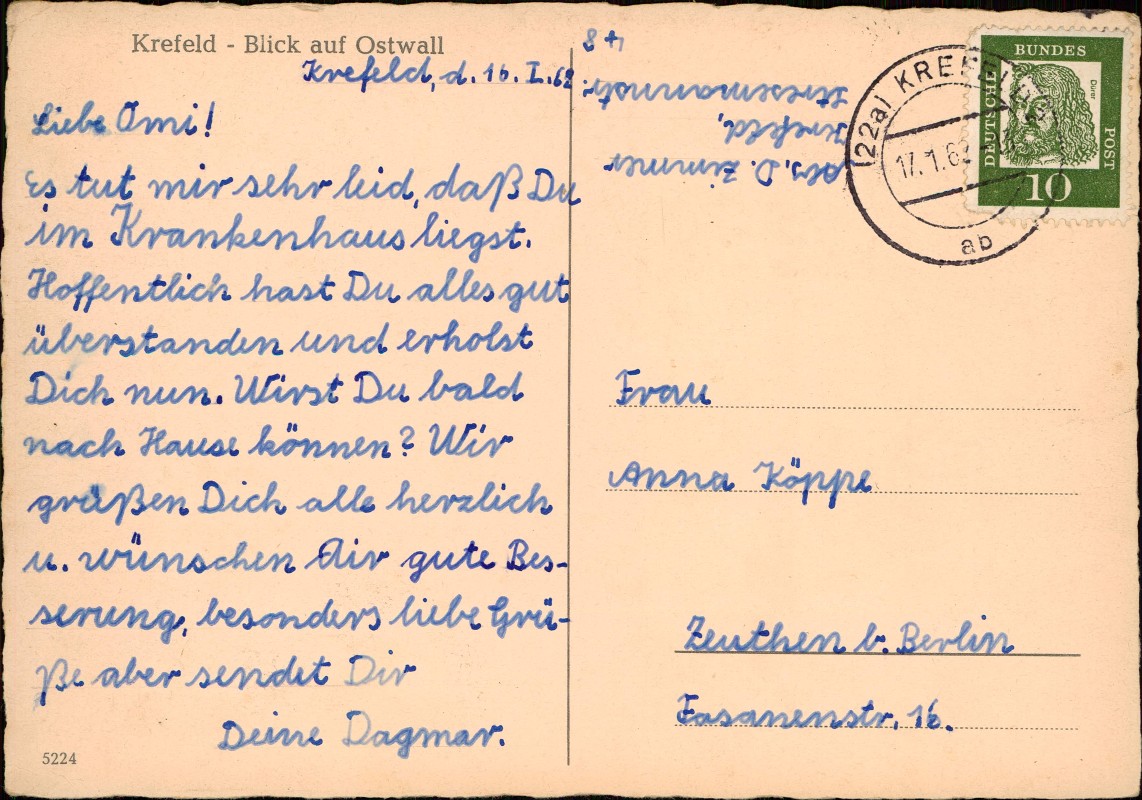 Krefeld - Blick auf Ostwall
Krefeld, d. 16. I. 62
Liebe Omi!
Es tut mir sehr leid, daß Du
im Krankenhaus liegst.
Hoffentlich hast Du alles gut
überstanden und erholst
Dich nun. Wirst Du bald
nach Hause können? Wir
grüßen Dich alle herzlich
u. wünschen Dir gute Bes-
serung, besonders liebe Grü-
ße aber sendet Dir
Deine Dagmar.
5224
Abs. D. Zimmer
Krefeld,
Stresemannstr.
48
(22a) KREFELD
17.1.62
ab
DEUTSCHE
BUNDES
POST
Dürer
10
Frau
Anna Köppe
Zeuthen b. Berlin
Fasanenstr. 16.